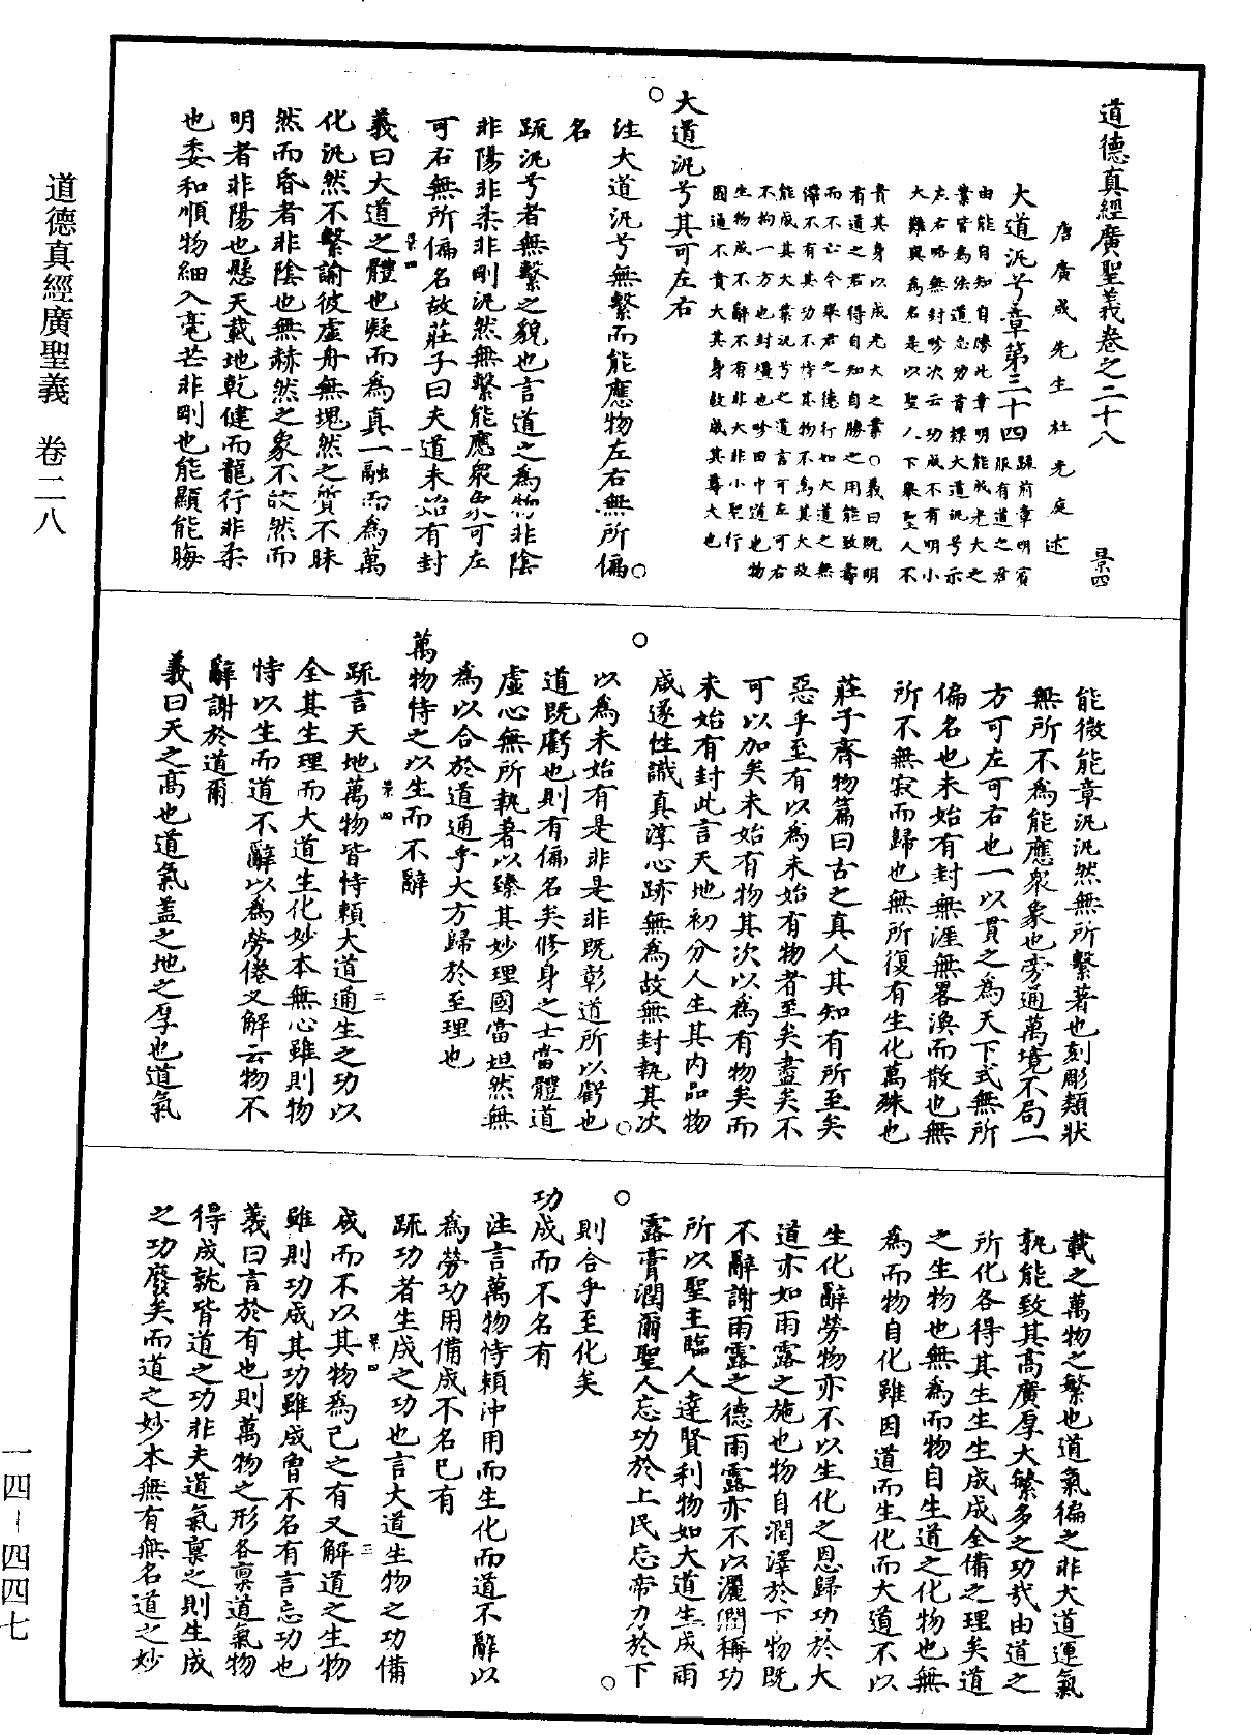 道德真經廣聖義卷之二十八
景四
唐廣成先生杜光庭述
大道汎兮章第三十四
疏前章明賓
服有道之君
由能自知自勝此章明能成光大之
業皆為法道忘功首標大道汎兮示
左右略無封畛次云功成不有明小
大難與為名是以聖人下舉聖人不
貴其身以成光大之業○義曰既明
有道之君得自知自勝之用能致壽
而不亡今舉君之德行如大道之無
滯不有其功不恃其物不為其大故
能成其大業汎兮之道言可左可右
不拘一方也封壃也畛田中道也物
生物成不辭不有非大非小聖行
圓通不貴大其身故成其尊大也
大道汎兮其可左右
○
注大道汎兮無繫而能應物左右無所偏
名
○
疏汎兮者無繫之貌也言道之為物非陰
非陽非柔非剛汎然無繫能應衆象可左
可右無所偏名故莊子曰夫道未始有封
景四 一
義曰大道之體也凝而為真一融而為萬
化汎然不繫諭彼虛舟無塊然之質不昧
然而昏者非陰也無赫然之象不皎然而
明者非陽也懸天載地乾健而龍行非柔
也委和順物細入毫芒非剛也能顯能晦
能微能章汎汎然無所繫著也刻彫類狀
無所不為能應衆象也旁通萬境不局一
方可左可右也一以貫之為天下式無所
偏名也未始有封無涯無畧渙而散也無
所不無寂而歸也無所復有生化萬殊也
莊子齊物篇曰古之真人其知有所至矣
惡乎至有以為未始有物者至矣盡矣不
可以加矣未始有物其次以為有物矣而
未始有封此言天地初分人生其內品物
咸遂性識真淳心跡無為故無封執其次
○
以為未始有是非是非既彰道所以虧也
○
道既虧也則有偏名矣修身之士當體道
虛心無所執著以臻其妙理國當坦然無
為以合於道通乎大方歸於至理也
萬物恃之以生而不辭
景四 二
疏言天地萬物皆恃賴大道通生之功以
全其生理而大道生化妙本無心雖則物
恃以生而道不辭以為勞倦又解云物不
辭謝於道爾
義曰天之高也道氣蓋之地之厚也道氣
載之萬物之繁也道氣徧之非大道運氣
孰能致其高廣厚大繁多之功哉由道之
所化各得其生生生成成全備之理矣道
之生物也無為而物自生道之化物也無
為而物自化雖因道而生化而大道不以
生化辭勞物亦不以生化之恩歸功於大
道亦如雨露之施也物自潤澤於下物既
不辭謝雨露之德雨露亦不以灑潤稱功
所以聖主臨人達賢利物如大道生成雨
露膏潤爾聖人忘功於上民忘帝力於下
○
則合乎至化矣
○
功成而不名有
注言萬物恃賴沖用而生化而道不辭以
為勞功用備成不名已有
疏功者生成之功也言大道生物之功備
景四 三
成而不以其物為已之有又解道之生物
雖則功成其功雖成曾不名有言忘功也
義曰言於有也則萬物之形各稟道氣物
得成就皆道之功非夫道氣稟之則生成
之功廢矣而道之妙本無有無名道之妙
道德真經廣聖義 卷二八
一四－四四七